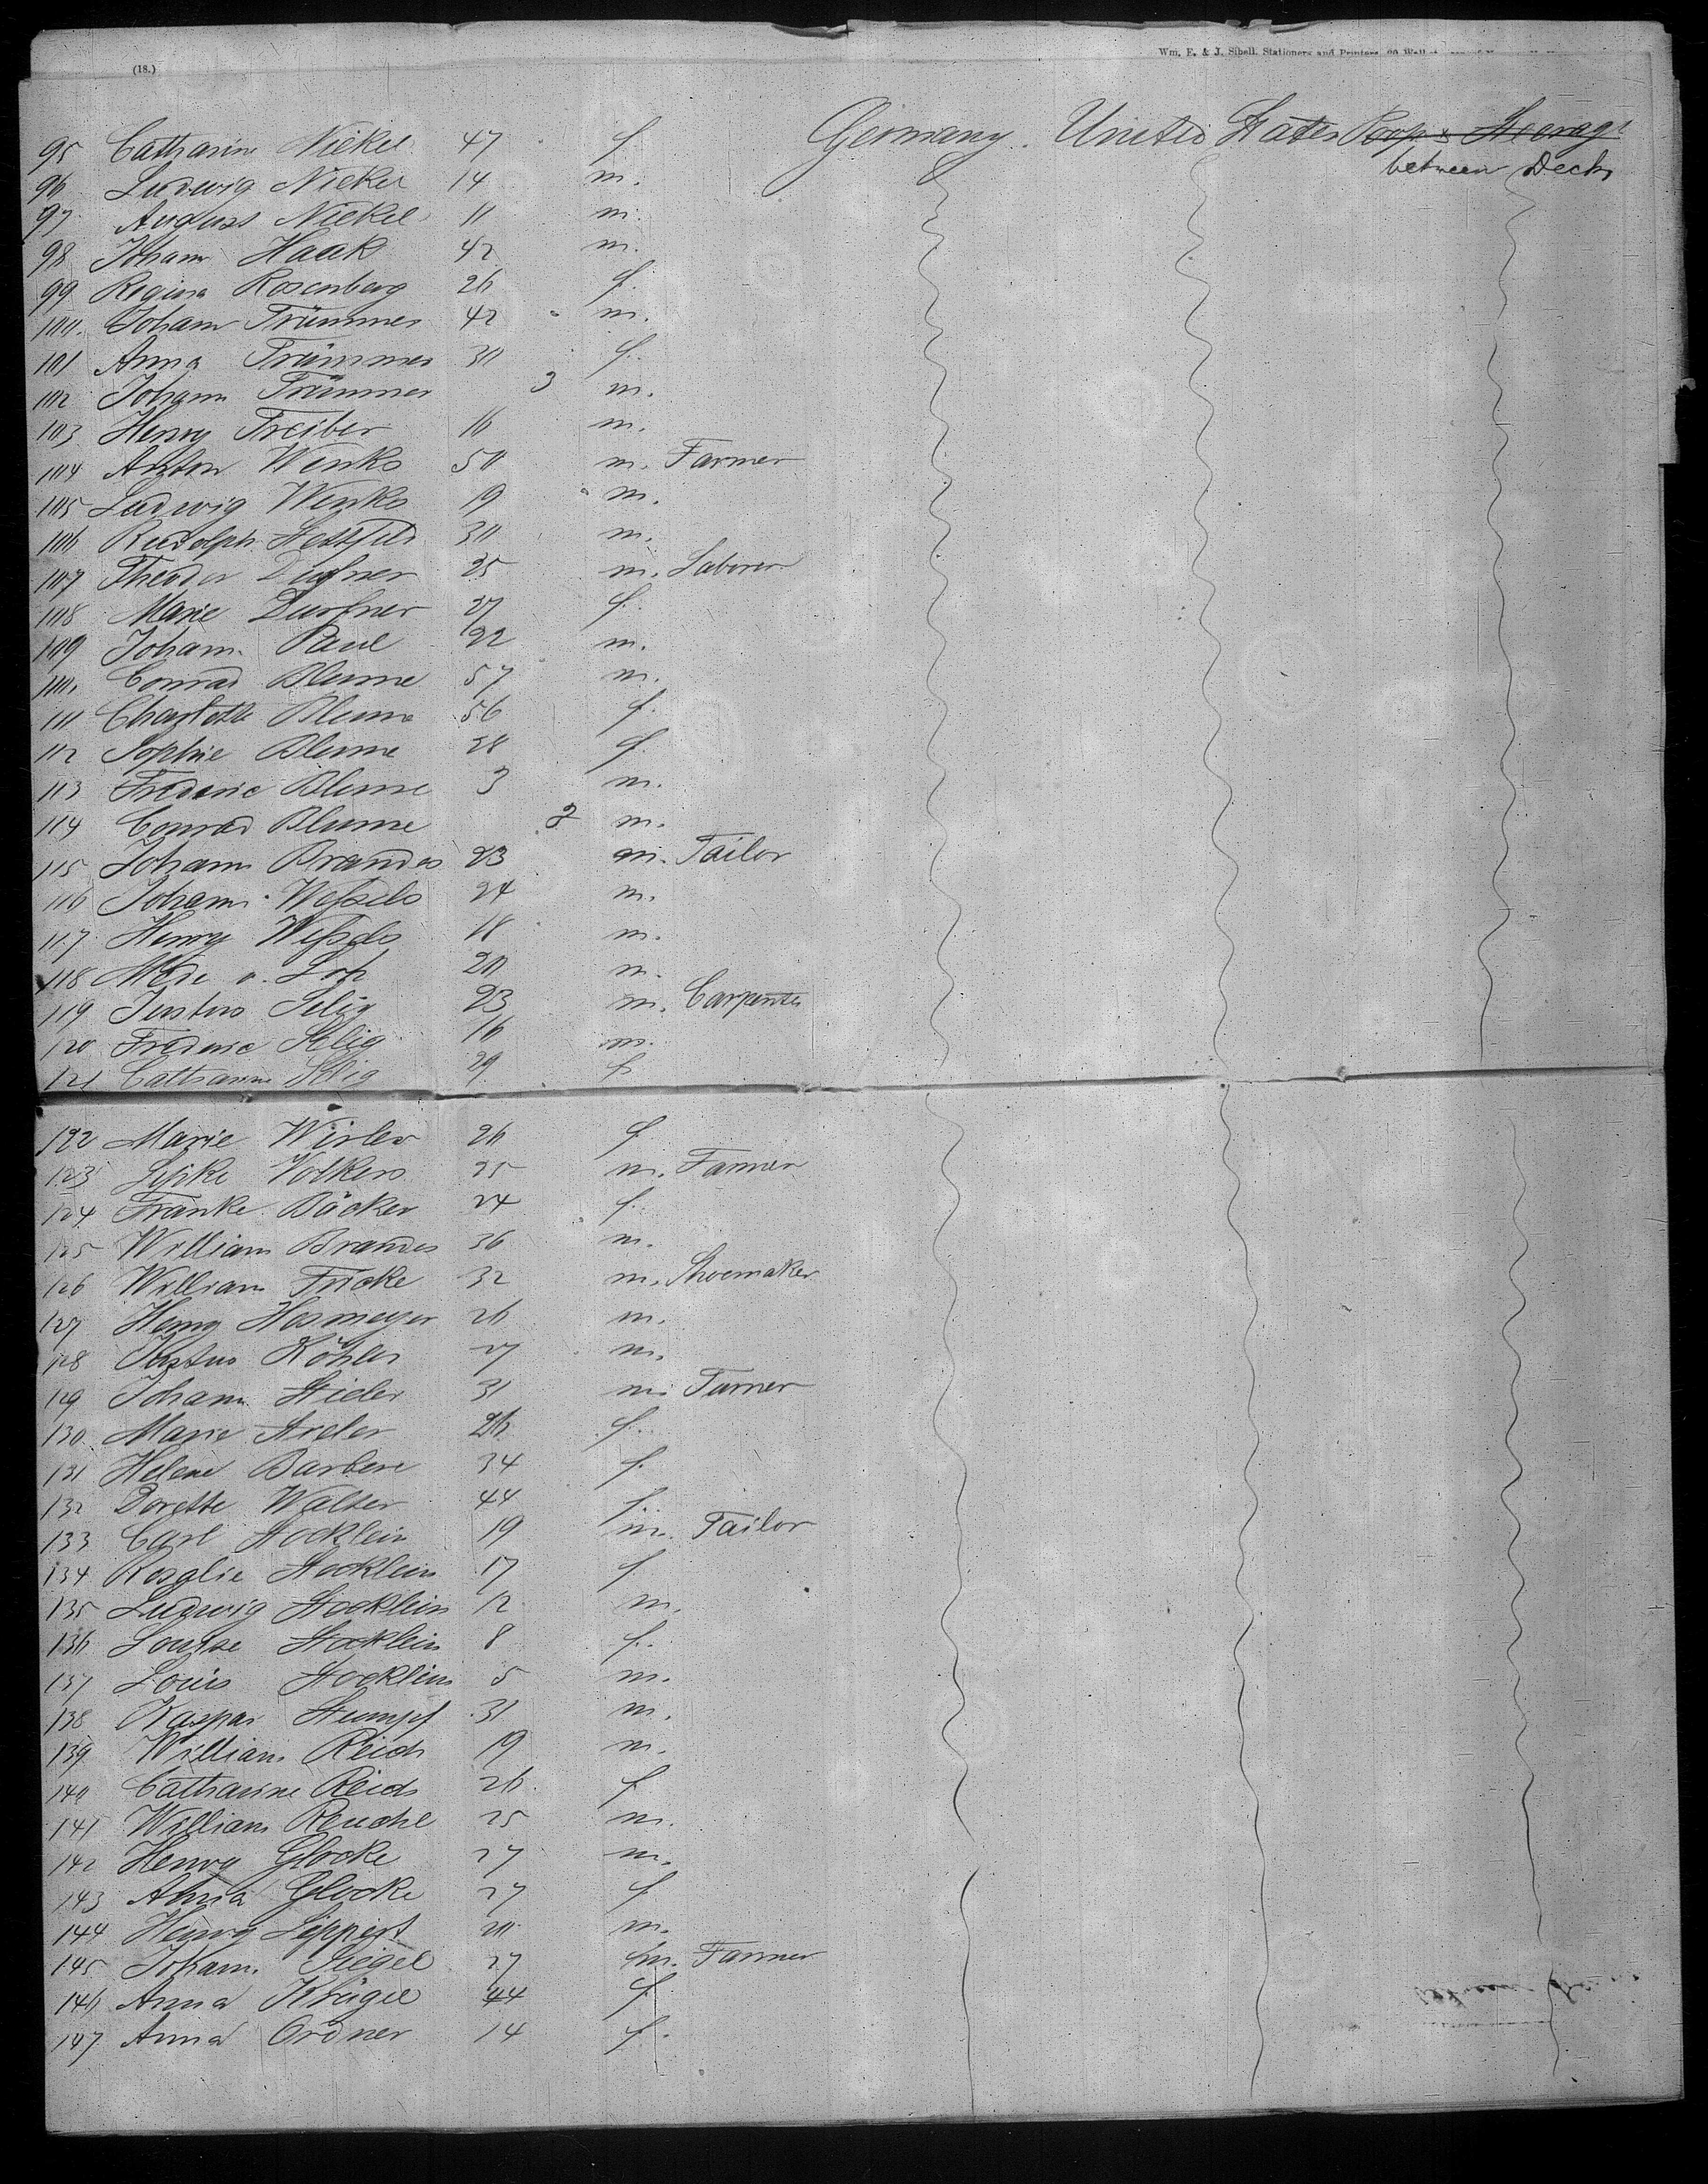 (18.)
Wm. E. & J. Sibell, Stationers and Printers,
95 Catharine Nickel 47 f Germany. United States Poop & Steerage
between Decks
96 Ludwig Nickel 14 m.
97 August Nickel 11 m.
98 Johann Haak 42 m.
99 Regina Rosenberg 26 f.
100. Johann Trümmer 42 m.
101 Anna Trümmer 30 f.
102 Johann Trümmer 3 m.
103 Henry Treiber 16 m.
104 Anton Wenks 50 m. Farmer
105 Ludwig Wenks 19 m.
106 Rudolph 30 m.
107 Theodor Dufner 25 m. Laborer
108 Marie Durfner 27 f.
109 Johann Paul 22 m.
110. Conrad Blume 57 m.
111 Charlotte Blume 56 f.
112 Sophie Blume 28 f.
113 Frederic Blume 3 m.
114 Conrad Blume 2 m.
115 Johann Brandes 23 m. Tailor
116 Johann Wessels 24 m.
117 Henry Wessels 18 m.
118 20 m.
119 Justus Selig 23 m. Carpenter
120 Frederic Selig 16 m.
121 Catharine Selig 29 f
122 Marie Wisler 26 f
123 Volkers 25 m. Farmer
124 Franke Bäcker 24 f.
125 William Brandes 36 m.
126 William Fricke 32 m. Shoemaker
127 Henry Hosmeyer 26 m.
128 Justus Köhler 27 m.
129 Johann Stieler 31 m. Turner
130 Marie Stieler 26 f.
131 Helene Barbere 34 f.
132 Dorette Walter 44 f.
133 Carl Stocklein 19 m. Tailor
134 Rosalie Stocklein 17 f
135 Ludwig Stocklein 12 m.
136 Louise Stocklein 8 f.
137 Louis Stocklein 5 m.
138 Kaspar Stumpf 31 m.
139 William Reids 19 m.
140 Catharine Reids 26 f
141 William Reuchl 25 m.
142 Henry Glocke 27 m.
143 Anna Glocke 27 f
144 Henry Lippert 20 m.
145 Johann Siegel 27 m. Farmer
146 Anna Krügel 44 f
147 Anna Ordner 14 f.